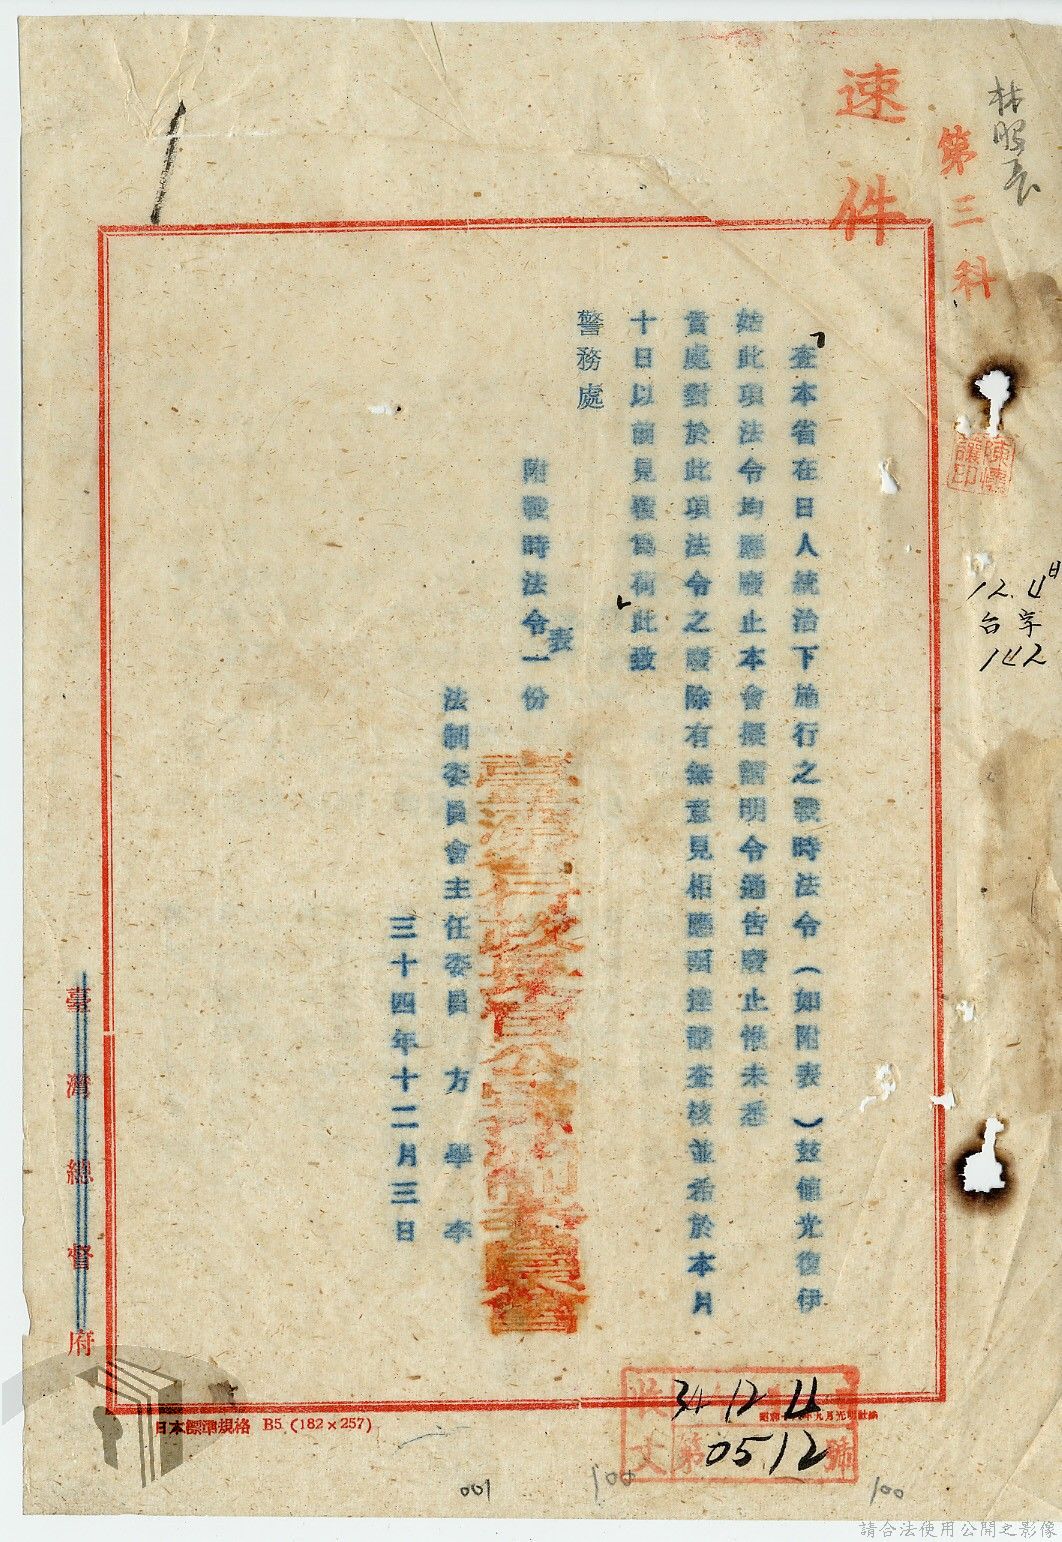 速件
第三科
查本省在日人統治下施行之戰時法令(如附表)茲值光復伊
始此項法令均應廢止本會擬請明令通告廢止惟未悉
貴處對於此項法令之廢除有無意見相應函達請查核並希於本月
十日以前見復為荷此致
警務處
附戰時法令表一份
法制委員會主任委員 方學李
三十四年十二月三日
臺灣省行政長官公署法制委員會
陳懷讓印
12.4日
台字
142
臺灣總督府
日本標準規格 B5 (182×257)
收文
34 12 4
第0512號
001
100
100
請合法使用公開之影像